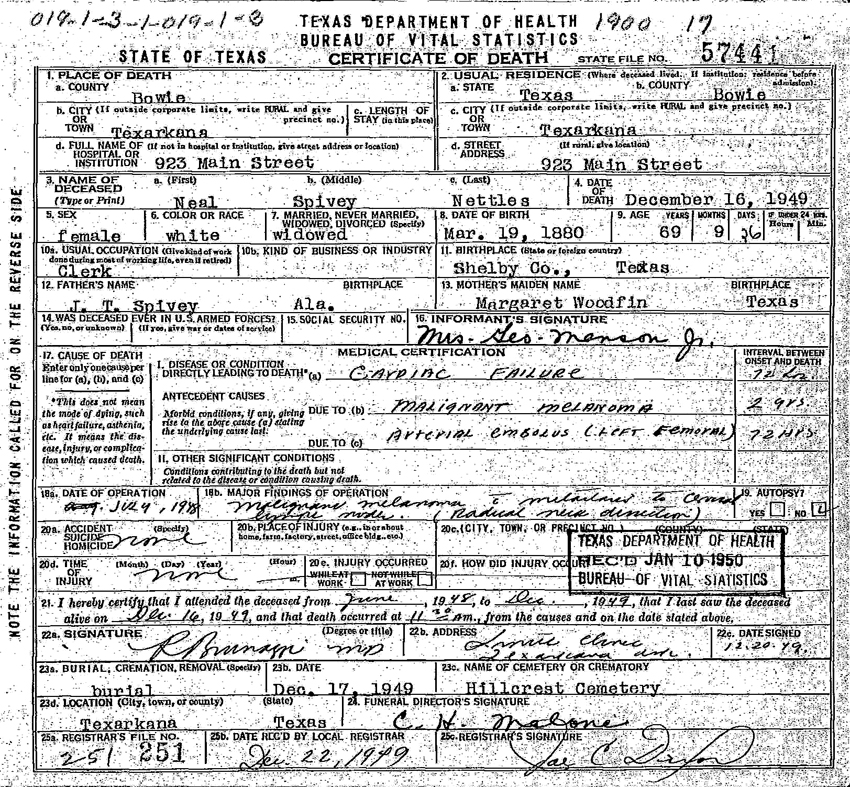 019-1-3-1-019-1-3 TEXAS DEPARTMENT OF HEALTH 1900 17
BUREAU OF VITAL STATISTICS
STATE OF TEXAS CERTIFICATE OF DEATH STATE FILE NO. 57441
NOTE THE INFORMATION CALLED FOR ON THE REVERSE SIDE
1. PLACE OF DEATH
a. COUNTY
Bowie
2. USUAL RESIDENCE (Where deceased lived. If institution: residence before admission).
a. STATE b. COUNTY
Texas Bowie
b. CITY (If outside corporate limits, write RURAL and give precinct no.)
OR
TOWN Texarkana
c. LENGTH OF
STAY (in this place)
c. CITY (If outside corporate limits, write RURAL and give precinct no.)
OR
TOWN Texarkana
d. FULL NAME OF (If not in hospital or institution, give street address or location)
HOSPITAL OR
INSTITUTION 923 Main Street
d. STREET (If rural, give location)
ADDRESS
923 Main Street
3. NAME OF
DECEASED
(Type or Print)
a. (First) b. (Middle) c. (Last)
Neal Spivey Nettles
4. DATE
OF
DEATH December 16, 1949
5. SEX
female
6. COLOR OR RACE
white
7. MARRIED, NEVER MARRIED,
WIDOWED, DIVORCED (Specify)
widowed
8. DATE OF BIRTH
Mar. 19, 1880
9. AGE YEARS MONTHS DAYS IF UNDER 24 HRS.
Hours Min.
69 9 26
10a. USUAL OCCUPATION (Give kind of work
done during most of working life, even if retired)
Clerk
10b. KIND OF BUSINESS OR INDUSTRY
11. BIRTHPLACE (State or foreign country)
Shelby Co., Texas
12. FATHER'S NAME BIRTHPLACE
J. T. Spivey Ala.
13. MOTHER'S MAIDEN NAME BIRTHPLACE
Margaret Woodfin Texas
14. WAS DECEASED EVER IN U.S. ARMED FORCES?
(Yes, no, or unknown) (If yes, give war or dates of service)
15. SOCIAL SECURITY NO.
16. INFORMANT'S SIGNATURE
Mrs. Geo. Manson Jr.
17. CAUSE OF DEATH
Enter only one cause per
line for (a), (b), and (c)
*This does not mean
the mode of dying, such
as heart failure, asthenia,
etc. It means the dis-
ease, injury, or complica-
tion which caused death.
MEDICAL CERTIFICATION
INTERVAL BETWEEN
ONSET AND DEATH
I. DISEASE OR CONDITION
DIRECTLY LEADING TO DEATH* (a) CARDIAC FAILURE 72 hrs
ANTECEDENT CAUSES
Morbid conditions, if any, giving
rise to the above cause (a) stating
the underlying cause last.
DUE TO (b) MALIGNANT MELANOMA 2 yrs.
DUE TO (c) ARTERIAL EMBOLUS (LEFT FEMORAL) 72 HRS
II. OTHER SIGNIFICANT CONDITIONS
Conditions contributing to the death but not
related to the disease or condition causing death.
18a. DATE OF OPERATION
JULY, 1948
18b. MAJOR FINDINGS OF OPERATION
Malignant melanoma c metastases to
nodes (Radical neck dissection)
19. AUTOPSY?
YES NO
20a. ACCIDENT (Specify)
SUICIDE
HOMICIDE none
20b. PLACE OF INJURY (e.g., in or about
home, farm, factory, street, office bldg., etc.)
20c. (CITY, TOWN, OR PRECINCT NO.) (COUNTY) (STATE)
TEXAS DEPARTMENT OF HEALTH
REC'D JAN 10 1950
BUREAU OF VITAL STATISTICS
20d. TIME (Month) (Day) (Year) (Hour)
OF
INJURY none m.
20e. INJURY OCCURRED
WHILE AT WORK NOT WHILE AT WORK
20f. HOW DID INJURY OCCUR?
21. I hereby certify that I attended the deceased from June, 1948, to Dec., 1949, that I last saw the deceased
alive on Dec. 16, 1949, and that death occurred at 11 am., from the causes and on the date stated above.
22a. SIGNATURE (Degree or title)
MD
22b. ADDRESS
Clinic
Texarkana Ark.
22c. DATE SIGNED
12-20-49
23a. BURIAL, CREMATION, REMOVAL (Specify)
burial
23b. DATE
Dec. 17, 1949
23c. NAME OF CEMETERY OR CREMATORY
Hillcrest Cemetery
23d. LOCATION (City, town, or county) (State)
Texarkana Texas
24. FUNERAL DIRECTOR'S SIGNATURE
C. H. Malone
25a. REGISTRAR'S FILE NO.
251 251
25b. DATE REC'D BY LOCAL REGISTRAR
Dec. 22, 1949
25c. REGISTRAR'S SIGNATURE
Joe C